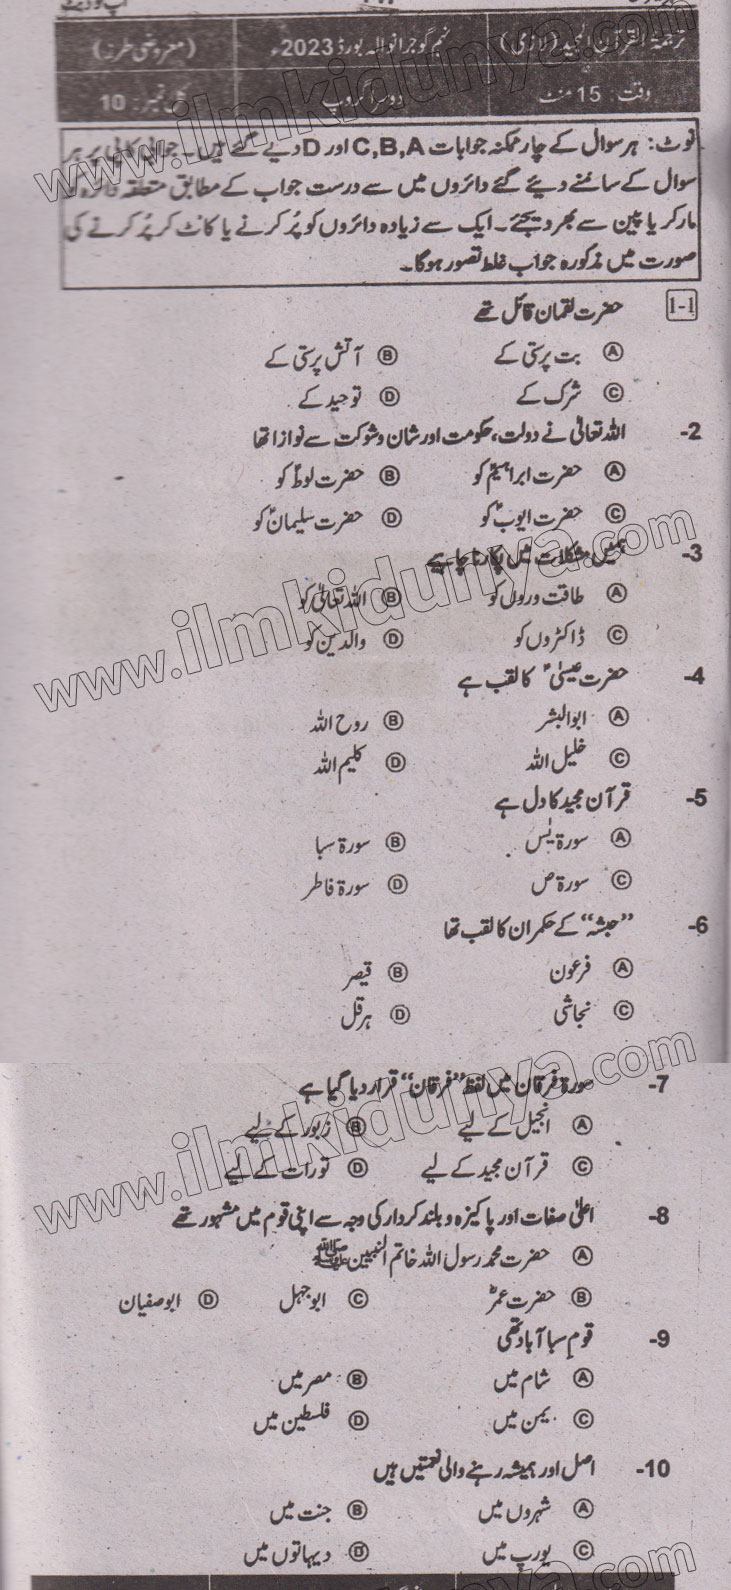 ترجمۃ القرآن المجید (لازمی) نہم گوجرانوالہ بورڈ 2023ء (معروضی طرز)
وقت: 15 منٹ دوسرا گروپ کل نمبر: 10
نوٹ: ہر سوال کے چار ممکنہ جوابات C,B,A اور D دیے گئے ہیں۔ جوابی کاپی پر ہر
سوال کے سامنے دیئے گئے دائروں میں سے درست جواب کے مطابق متعلقہ دائرہ کو
مارکر یا پین سے بھر دیجئے۔ ایک سے زیادہ دائروں کو پُر کرنے یا کاٹ کر پُر کرنے کی
صورت میں مذکورہ جواب غلط تصور ہوگا۔
1-1 حضرت لقمان قائل تھے
A بت پرستی کے B آتش پرستی کے
C شرک کے D توحید کے
2- اللہ تعالیٰ نے دولت، حکومت اور شان و شوکت سے نوازا تھا
A حضرت ابراہیمؑ کو B حضرت لوطؑ کو
C حضرت ایوبؑ کو D حضرت سلیمانؑ کو
3- ہمیں مشکلات میں پکارنا چاہیے
A طاقت وروں کو B اللہ تعالیٰ کو
C ڈاکٹروں کو D والدین کو
4- حضرت عیسیٰؑ کا لقب ہے
A ابوالبشر B روح اللہ
C خلیل اللہ D کلیم اللہ
5- قرآن مجید کا دل ہے
A سورۃ یٰس B سورۃ سبا
C سورۃ ص D سورۃ فاطر
6- ”حبشہ“ کے حکمران کا لقب تھا
A فرعون B قیصر
C نجاشی D ہرقل
7- سورۃ فرقان میں لفظ ”فرقان“ قرار دیا گیا ہے
A انجیل کے لیے B زبور کے لیے
C قرآن مجید کے لیے D تورات کے لیے
8- اعلیٰ صفات اور پاکیزہ و بلند کردار کی وجہ سے اپنی قوم میں مشہور تھے
A حضرت محمد رسول اللہ خاتم النبیین ﷺ
B حضرت عمرؓ C ابوجہل D ابوصفیان
9- قومِ سبا آباد تھی
A شام میں B مصر میں
C یمن میں D فلسطین میں
10- اصل اور ہمیشہ رہنے والی نعمتیں ہیں
A شہروں میں B جنت میں
C یورپ میں D دیہاتوں میں
www.ilmkidunya.com
www.ilmkidunya.com
www.ilmkidunya.com
www.ilmkidunya.com